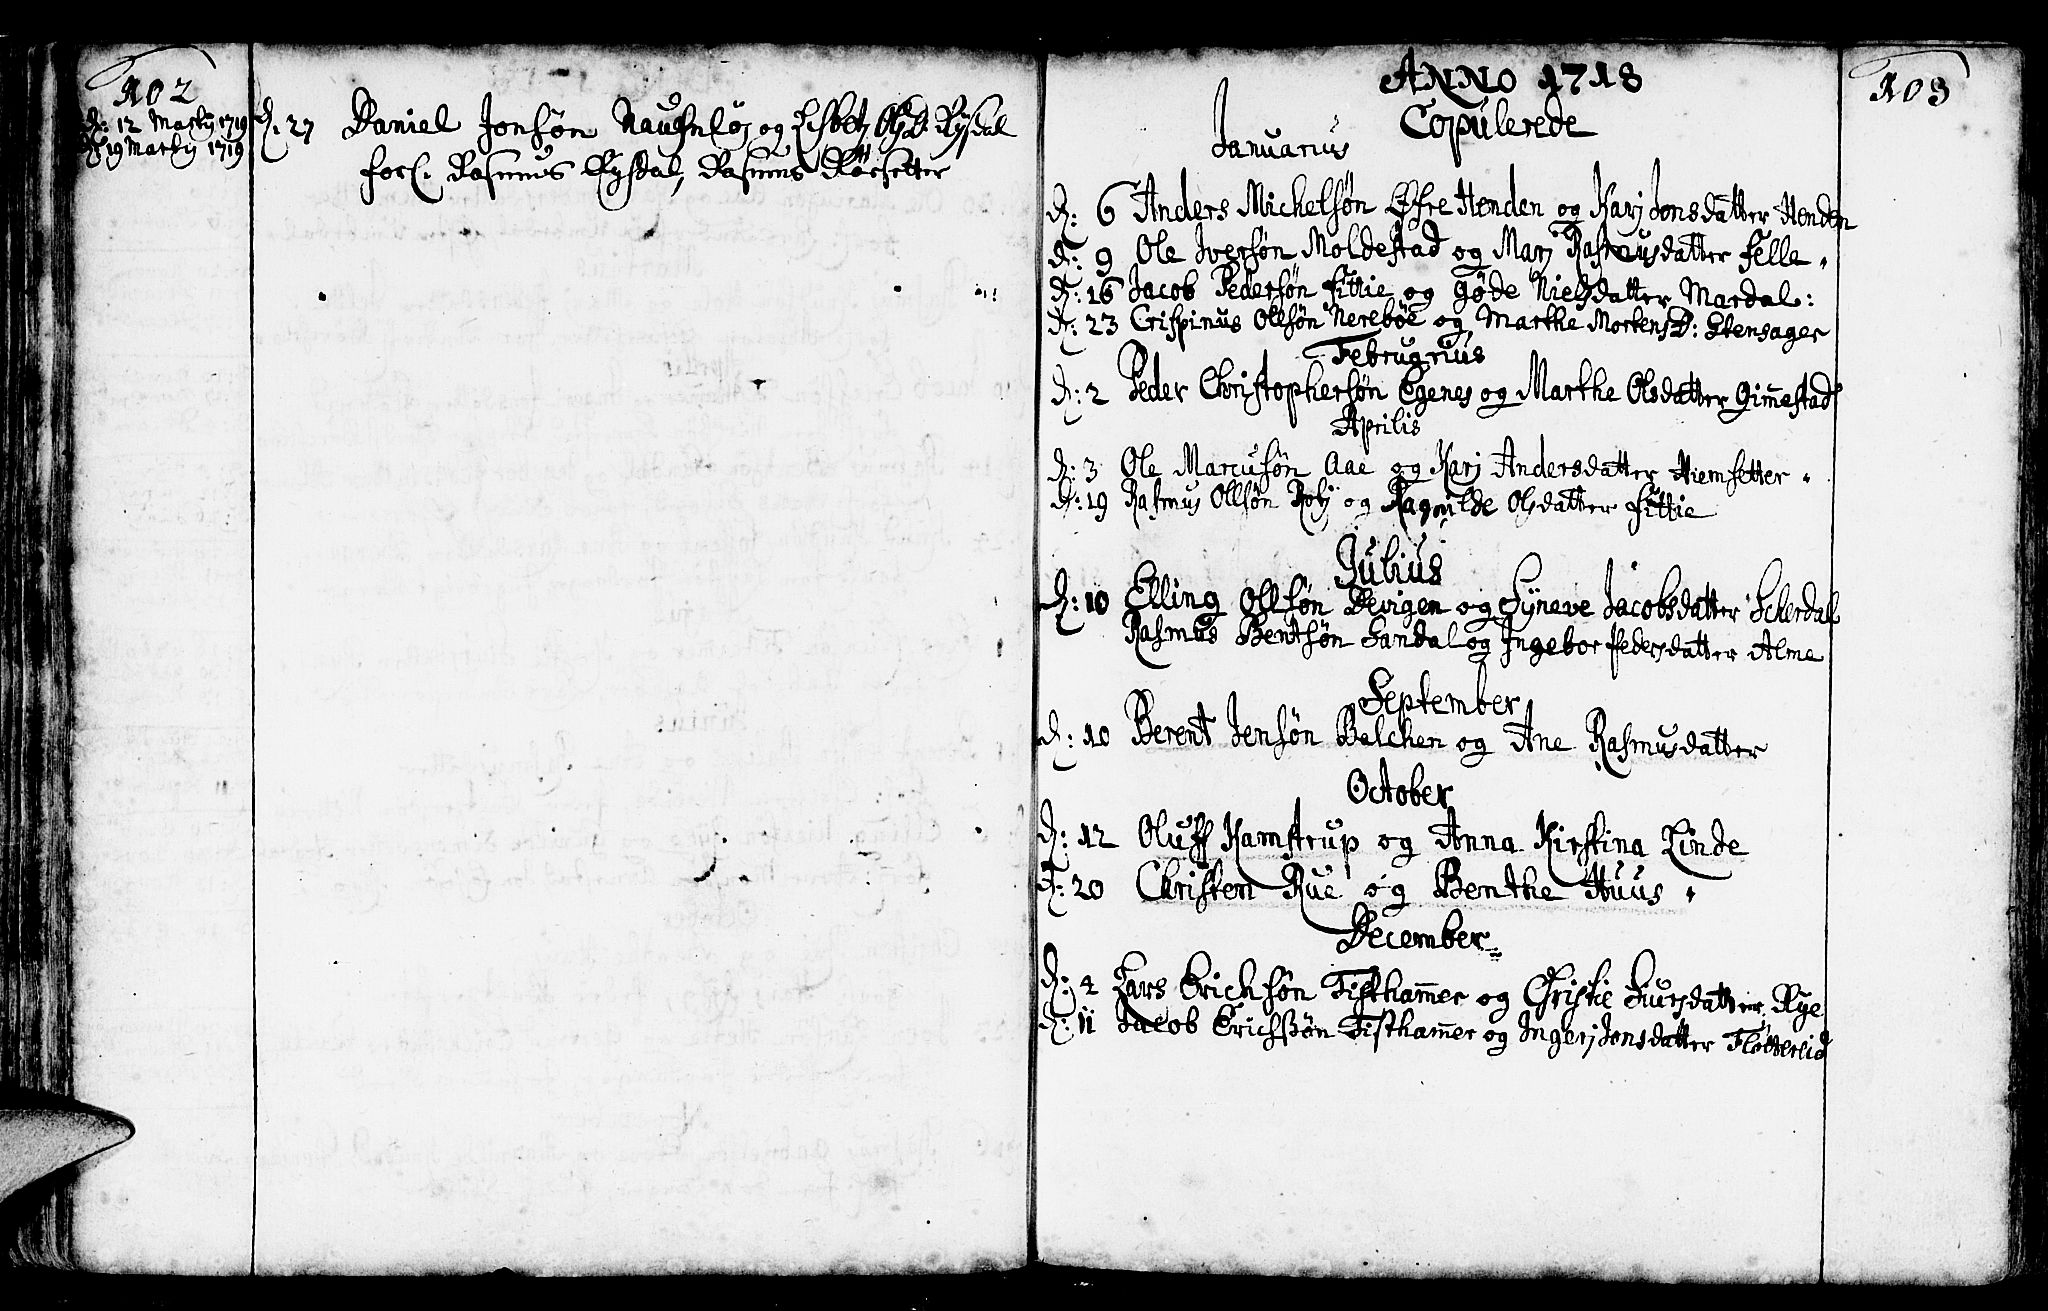 102
d: 12 Martij 1719
d: 19 Martij 1719
d. 27 Daniel Jonsøn og Lisbet Ols D. Rysdal
forl. Rasmus Rysdal, Rasmus Rørsetter
103
ANNO 1718
Copulerede
Januarius
d: 6 Anders Michelsøn Øfre Henden og Karj Jonsdatter Henden
d: 9 Ole Iversøn Moldestad og Marj Rasmusdatter Felle
d: 16 Jacob Pedersøn Fittie og Gøde Nielsdatter Mardal:
d: 23 Crispinus Ollsøn Nerebøe og Marthe Mortens D: Stensager
Februarius
d: 2 Peder Christophersøn Egenes og Marthe Olsdatter Gim̄estad
Aprilis
d: 3 Ole Marcusøn Aae og Karj Andersdatter Hiemsetter
d: 19 Rasmus Ollsøn Roti og Ragnilde Olsdatter Fittie
Julius
d: 10 Elling Ollsøn Devigen og Syneve Jacobsdatter Scherdal
Rasmus Bentsøn Sandal og Ingebor Pedersdatter Alme
September
d: 10 Berent Jensøn Balchen og Ane Rasmusdatter
October
d: 12 Oluff Kamstrup og Anna Kirstina Linde
d: 20 Christen Rue og Benthe Huus
December
d: 4 Lars Erichsøn Tistham̄er og Christie Siursdatter Rye
d: 11 Jacob Erichsøn Tistham̄er og Ingerj Jonsdatter Fløttereid